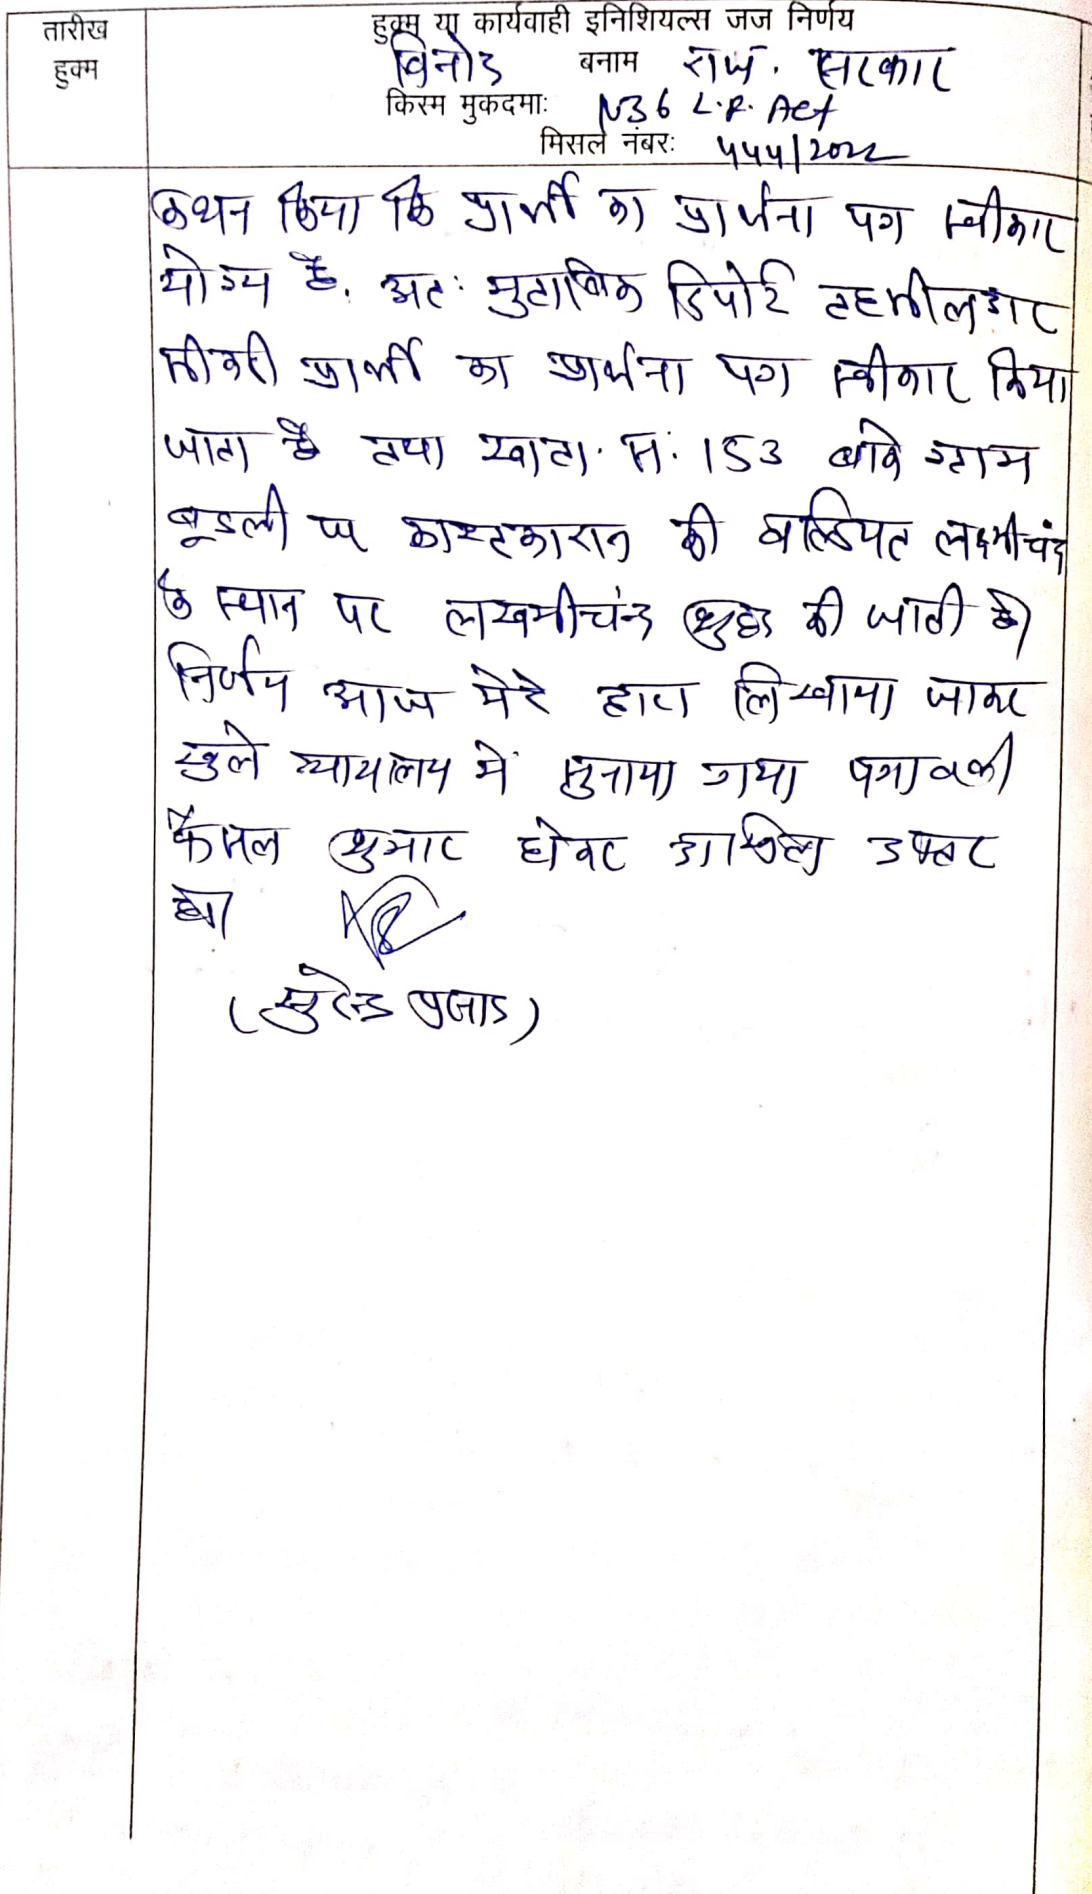 तारीख
हुक्म
हुक्म या कार्यवाही इनिशियल्स जज निर्णय
विनोद बनाम राज. सरकार
किस्म मुकदमाः 136 L.R. Act
मिसल नंबरः 444/2022
कथन किया कि प्रार्थी का प्रार्थना पत्र स्वीकार
योग्य है. अतः मुताबिक रिपोर्ट तहसीलदार
सीकरी प्रार्थी का प्रार्थना पत्र स्वीकार किया
जाता है तथा खाता. सं. 153 वाके ग्राम
बूडली पर काश्तकारान की वल्दियत लक्ष्मीचंद
के स्थान पर लखमीचंन्द शुद्ध की जाती है।
निर्णय आज मेरे द्वारा लिखाया जाकर
खुले न्यायालय में सुनाया गया पत्रावली
फैसल शुमार होकर दाखिल दफ्तर
हो।
(सुरेन्द्र प्रसाद)